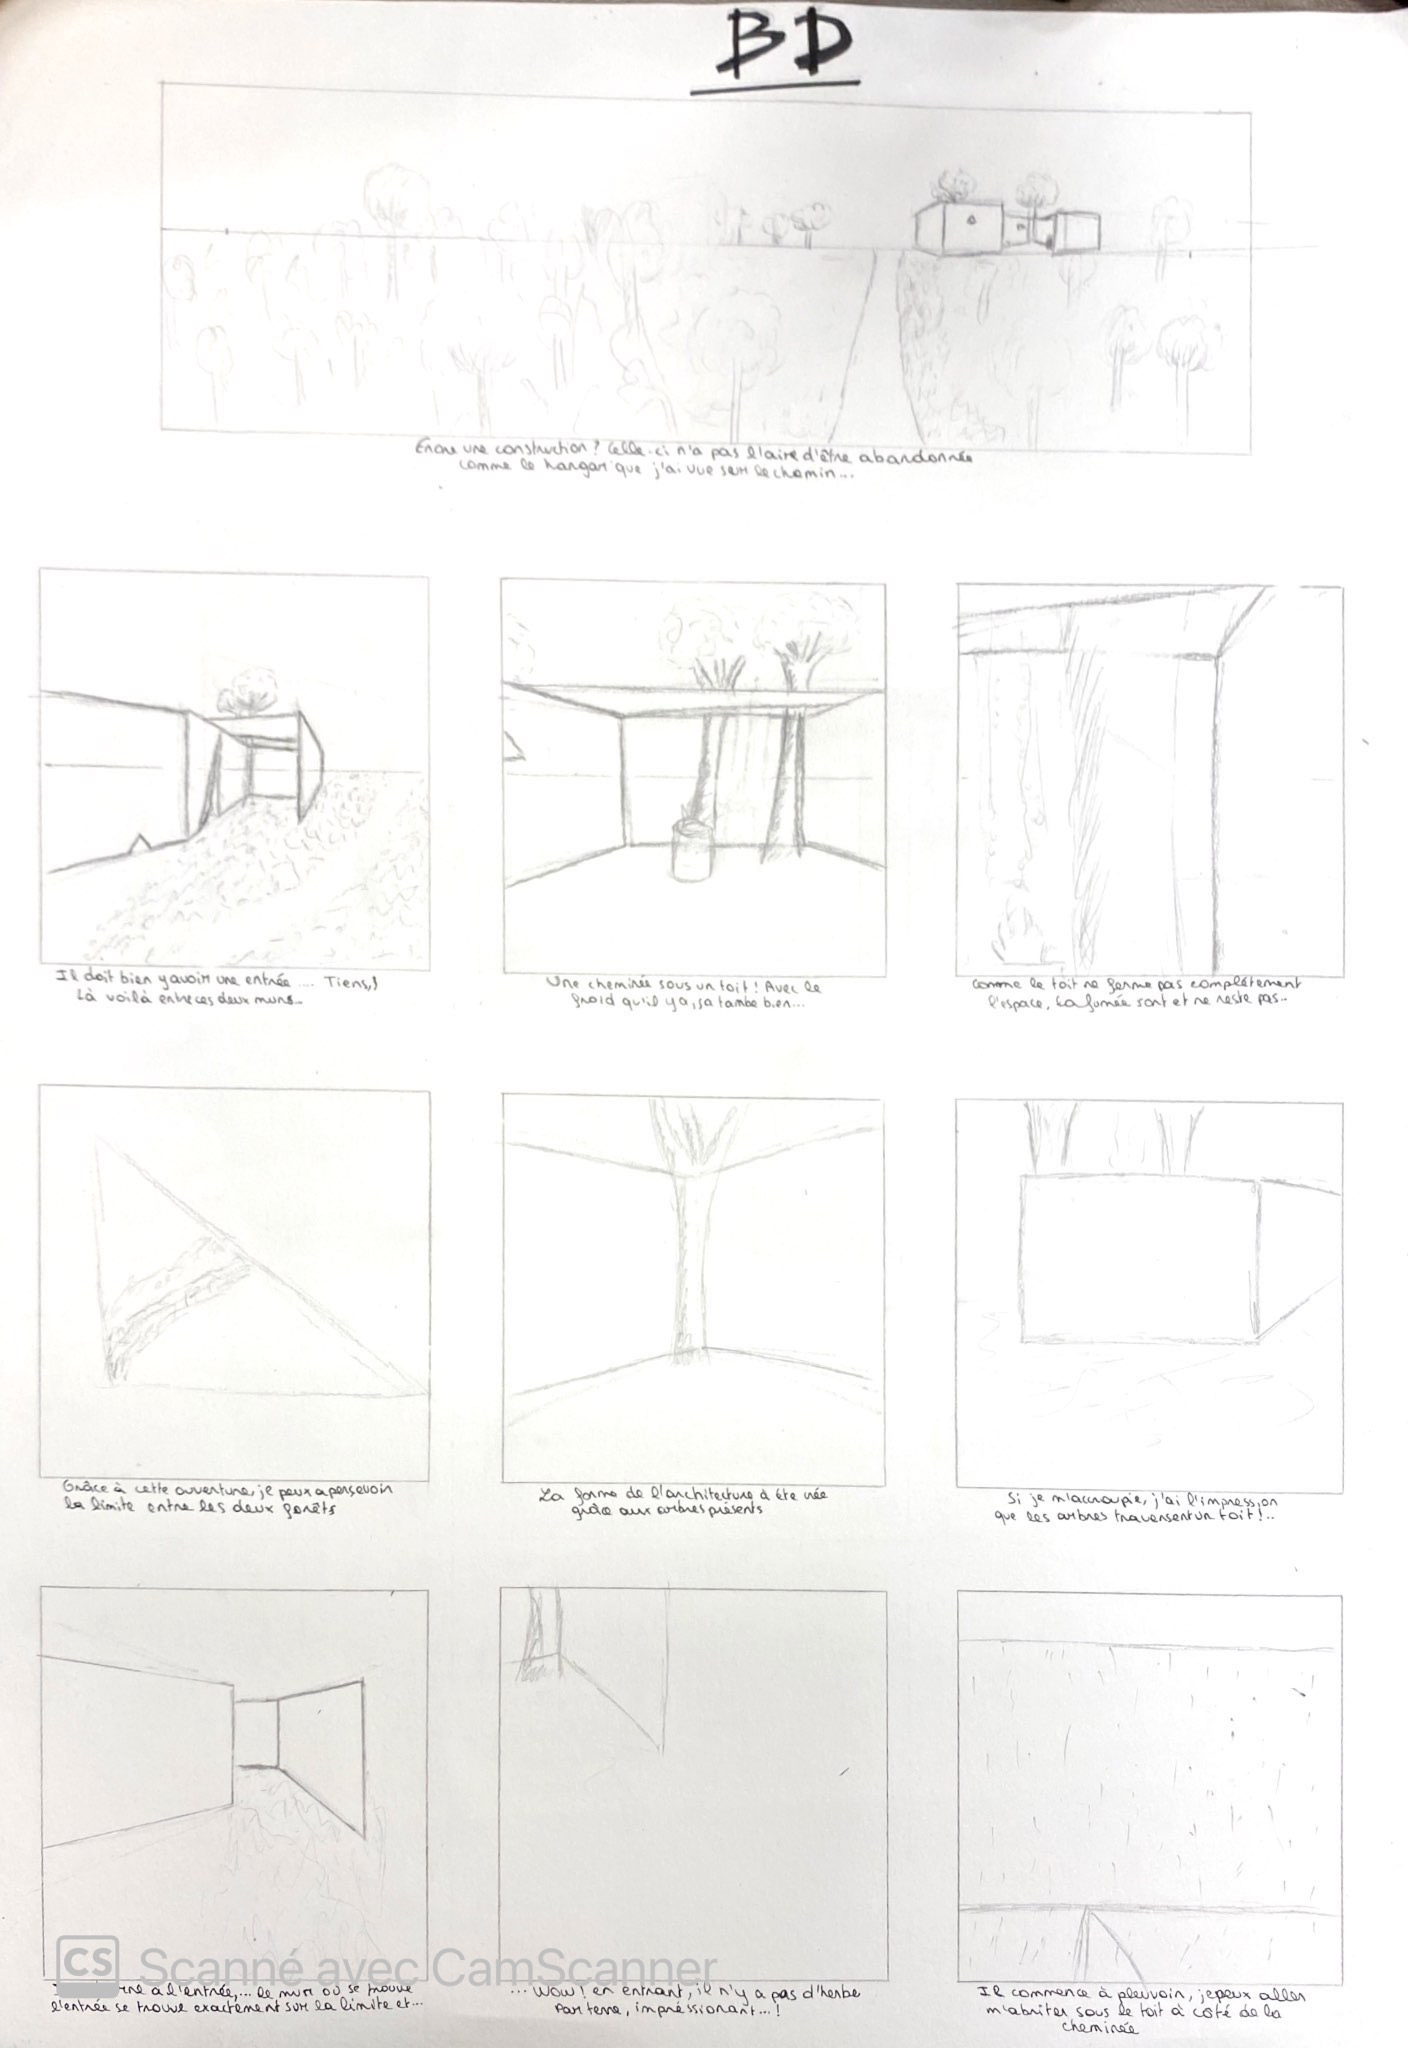 BD
Encore une construction ? Celle-ci n'a pas l'aire d'être abandonnée
comme le hangar que j'ai vue sur le chemin...
Il doit bien y avoir une entrée .... Tiens,!
Là voilà entre ces deux murs...
Une cheminée sous un toit ! Avec le
froid qu'il y a, sa tombe bien...
Comme le toit ne ferme pas complètement
l'espace, la fumée sort et ne reste pas..
Grâce à cette ouverture, je peux apersevoir
la limite entre les deux forêts
La forme de l'architecture à été crée
grâce aux arbres présents
Si je m'accroupie, j'ai l'impression
que les arbres traversent un toit !..
à l'entrée,... le mur où se trouve
l'entrée se trouve exactement sur la limite et...
... Wow ! en entrant, il n'y a pas d'herbe
par terre, impréssionant...!
Il commence à pleuvoir, je peux aller
m'abriter sous le toit à côté de la
cheminée
CS Scanné avec CamScanner